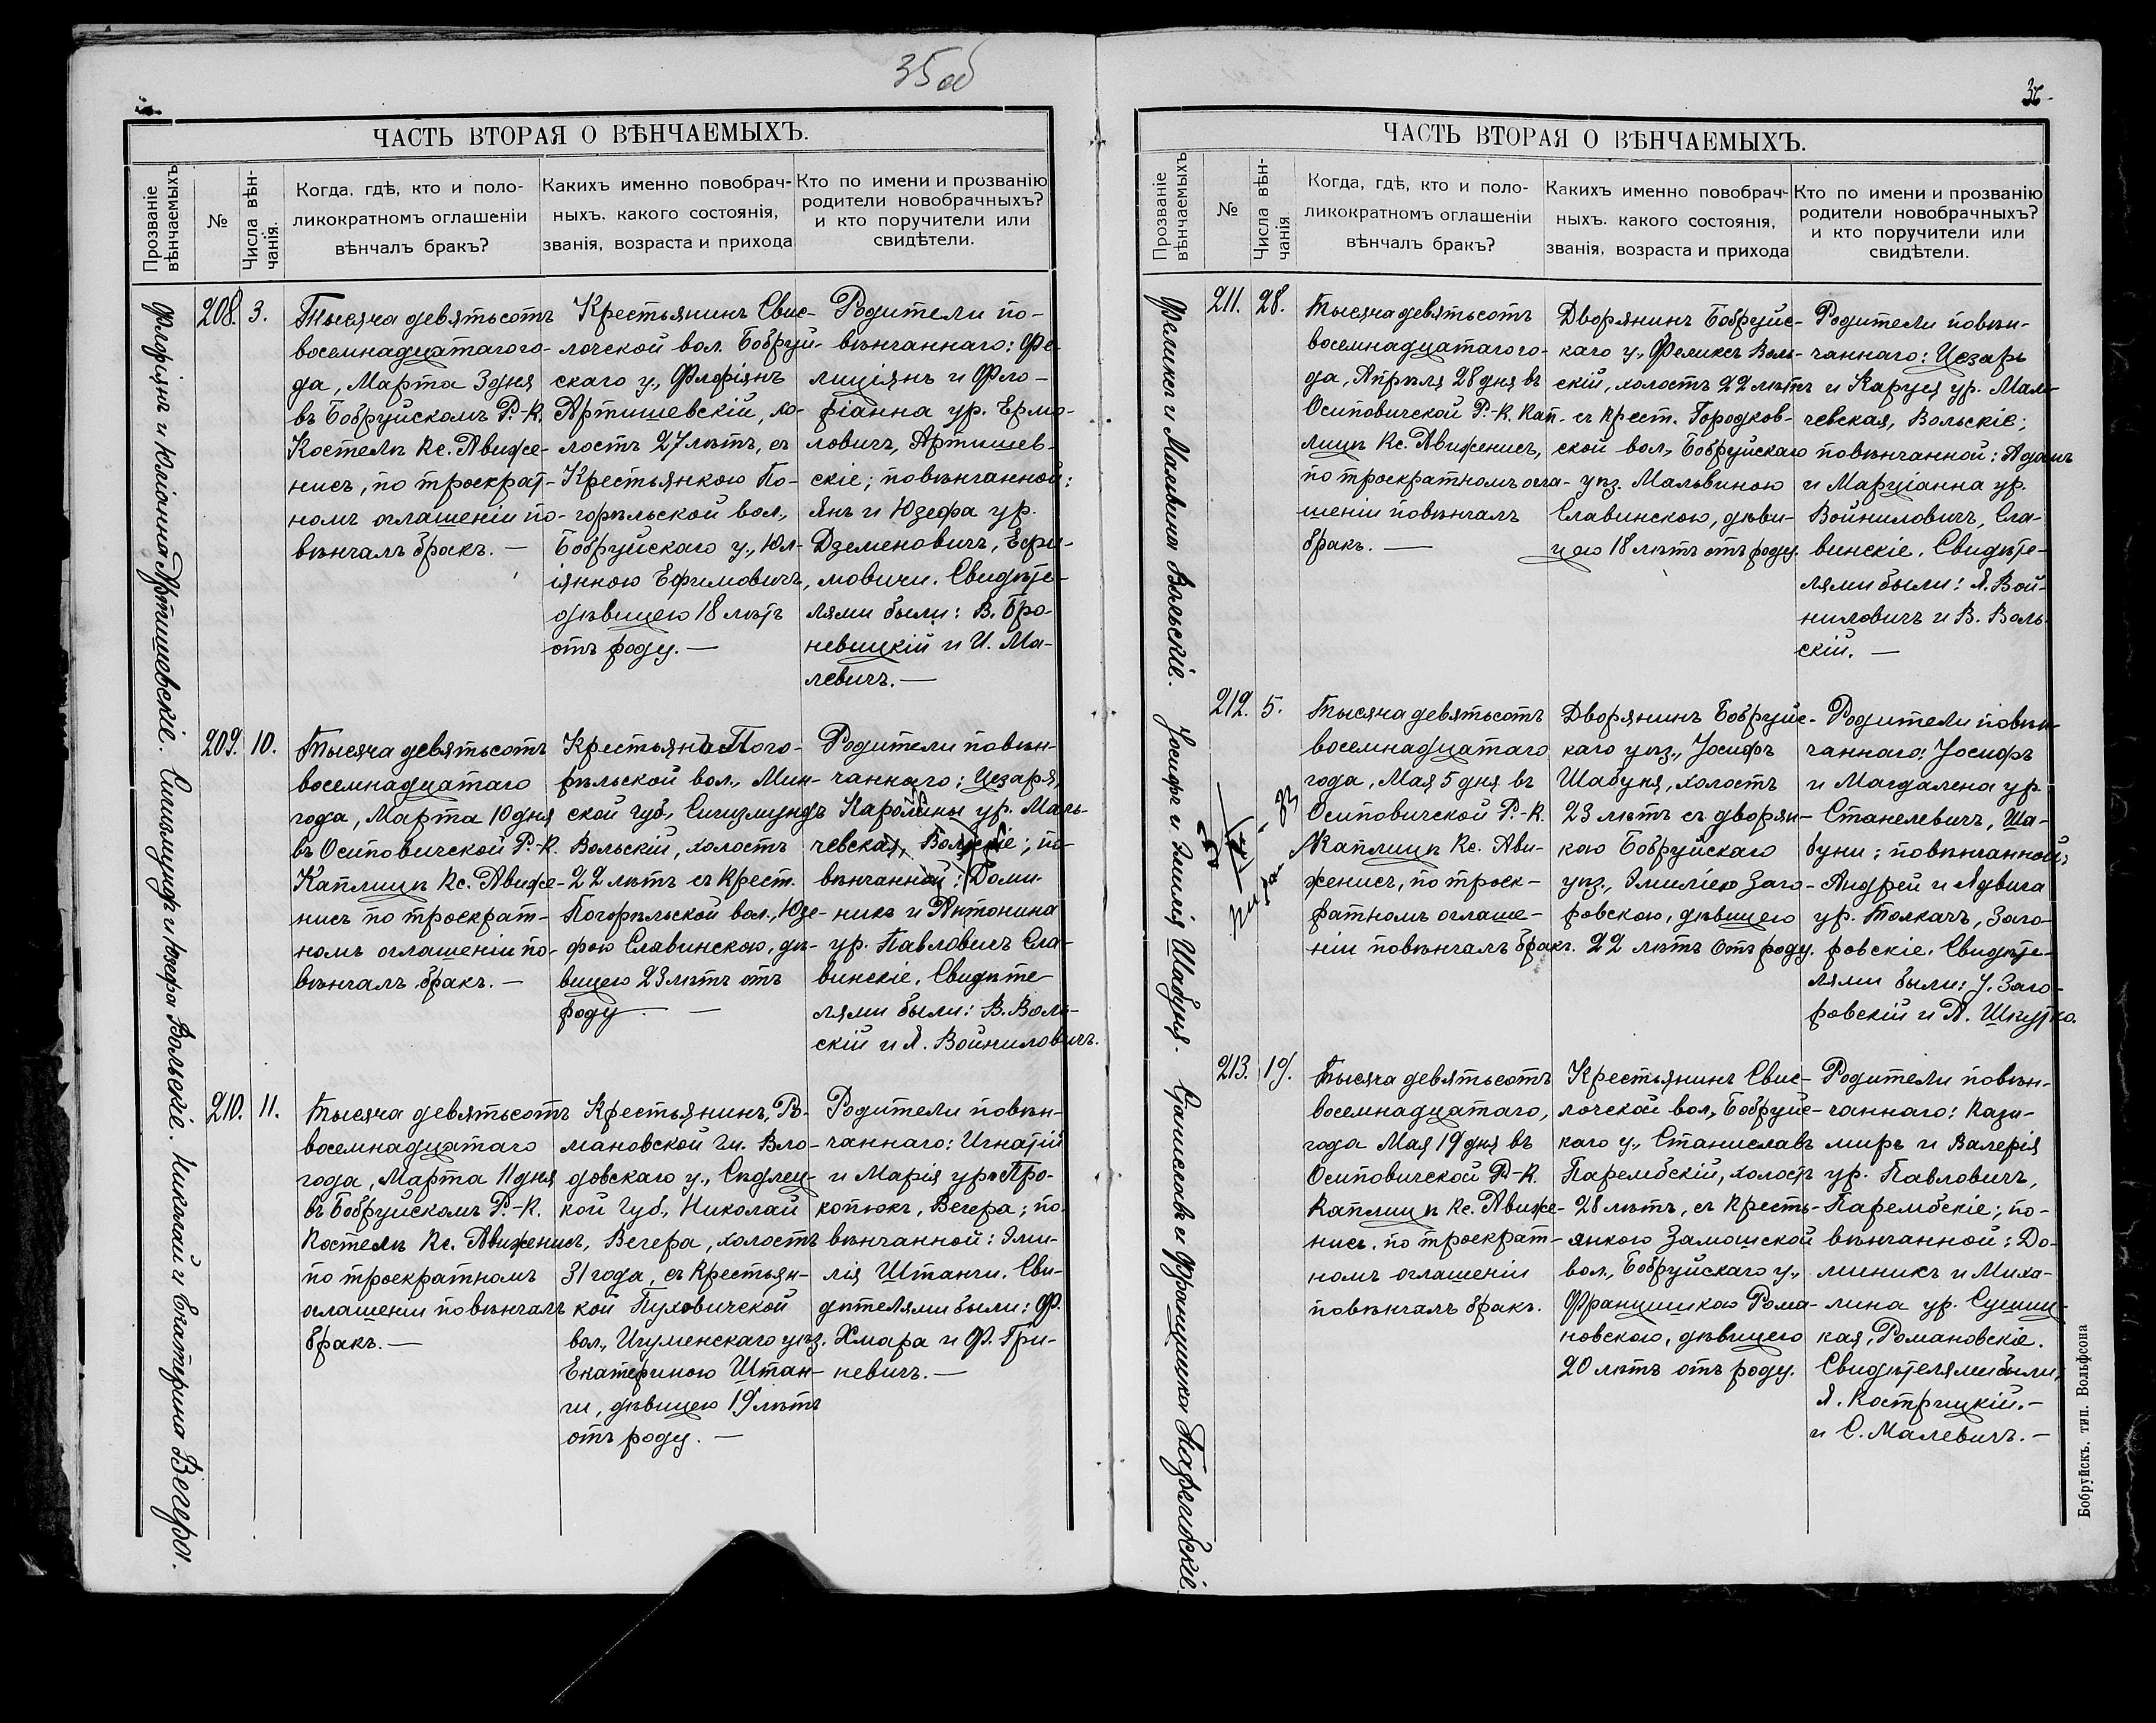 35об
ЧАСТЬ ВТОРАЯ О ВѢНЧАЕМЫХЪ.
Прозваніе вѣнчаемыхъ
№
Числа вѣн-
чанія.
Когда, гдѣ, кто и поло-
ликократномъ оглашеніи
вѣнчалъ бракъ?
Какихъ именно повобрач-
ныхъ. какого состоянія,
званія, возраста и прихода
Кто по имени и прозванію
родители новобрачныхъ?
и кто поручители или
свидѣтели.
Флоріянъ и Юліонна Артишевскіе.
208.
3.
Тысяча девятьсотъ
восемнадцатаго го-
да, Марта 3 дня
въ Бобруйскомъ Р.-К.
Костелѣ Кс. Авиже-
нисъ, по троекрат-
номъ оглашеніи по-
вѣнчалъ бракъ. —
Крестьянинъ Свис-
лочской вол. Бобруй-
скаго у., Флоріянъ
Артишевскій, хо-
лостъ 27 лѣтъ, съ
Крестьянкою По-
горѣльской вол.,
Бобруйскаго у., Юл-
іянною Ефимовичъ,
дѣвицею 18 лѣтъ
отъ роду. —
Родители по-
вѣнчаннаго: Фе-
лиціянъ и Фло-
ріанна ур. Ермо-
ловичъ, Артишев-
скіе; повѣнчанной:
Янъ и Юзефа ур.
Дземеновичъ, Ефи-
мовичи. Свидѣте-
лями были: В. Бро-
невицкій и И. Ма-
левичъ. —
Сигизмундъ и Юзефа Вольскіе.
209.
10.
Тысяча девятьсотъ
восемнадцатаго
года, Марта 10 дня
въ Осиповичской Р.-К.
Каплицѣ Кс. Авиже-
нисъ по троекрат-
номъ оглашеніи по-
вѣнчалъ бракъ. —
Крестьянъ Пого-
рѣльской вол., Мин-
ской губ., Сигизмундъ
Вольскій, холостъ
22 лѣтъ съ Крест.
Погорѣльской вол., Юзе-
фою Славинскою, дѣ-
вицею 23 лѣтъ отъ
роду. —
Родители повѣн-
чаннаго: Цезаря,
Каролины ур. Маль-
чевская, Вольскіе; по-
вѣнчанной: Доми-
никъ и Антонина
ур. Павловичъ Сла-
винскіе. Свидѣте-
лями были: В. Воль-
скій и Я. Войниловичъ.
Николай и Екатерина Вечера.
210.
11.
Тысяча девятьсотъ
восемнадцатаго
года, Марта 11 дня
въ Бобруйскомъ Р.-К.
Костелѣ Кс. Авиженисъ,
по троекратномъ
оглашеніи повѣнчалъ
бракъ. —
Крестьянинъ, Ро-
мановской гм. Вло-
довскаго у., Сѣдлец-
кой Губ., Николай
Вечера, холостъ
31 года, съ Крестьян-
кой Пуховичской
вол., Игуменскаго уѣз.
Екатериною Штан-
ги, дѣвицею 19 лѣтъ
отъ роду. —
Родители повѣн-
чаннаго: Игнатій
и Марія ур. Про-
копюкъ, Вечера; по-
вѣнчанной: Эми-
лія Штанги. Сви-
дѣтелями были: Ф.
Хмара и Ф. Гри-
невичъ. —
36.
ЧАСТЬ ВТОРАЯ О ВѢНЧАЕМЫХЪ.
Прозваніе вѣнчаемыхъ
№
Числа вѣн-
чанія
Когда, гдѣ, кто и поло-
ликократномъ оглашеніи
вѣнчалъ бракъ?
Какихъ именно повобрач-
ныхъ. какого состоянія,
званія, возраста и прихода
Кто по имени и прозванію
родители новобрачныхъ?
и кто поручители или
свидѣтели.
Феликсъ и Мальвина Вольскіе.
211.
28.
Тысяча девятьсотъ
восемнадцатаго го-
да, Апрѣля 28 дня въ
Осиповичской Р.-К. Кап-
лицѣ Кс. Авиженисъ,
по троекратномъ огла-
шеніи повѣнчалъ
бракъ. —
Дворянинъ Бобруйс-
каго у., Феликсъ Воль-
скій, холостъ 22 лѣтъ
съ Крест. Городков-
ской вол., Бобруйскаго
уѣз. Мальвиною
Славинскою, дѣви-
цею 18 лѣтъ отъ роду.
Родители повѣн-
чаннаго: Цезарь
и Каруся ур. Маль-
чевская, Вольскіе;
повѣнчанной: Адамъ
и Марціанна ур.
Войниловичъ, Сла-
винскіе. Свидѣте-
лями были: Я. Вой-
ниловичъ и В. Воль-
скій. —
Іосифъ и Эмилія Шабуня.
212.
5.
Тысяча девятьсотъ
восемнадцатаго
года, Мая 5 дня въ
Осиповичской Р.-К.
Каплицѣ Кс. Ави-
женисъ, по троек-
ратномъ оглаше-
ніи повѣнчалъ бракъ.
Дворянинъ Бобруйс-
каго уѣз., Іосифъ
Шабуня, холостъ
23 лѣтъ съ дворян-
кою Бобруйскаго
уѣз., Эмиліею Заго-
ровскою, дѣвицею
22 лѣтъ отъ роду.
Родители повѣн-
чаннаго: Іосифъ
и Магдалена ур.
Станелевичъ, Ша-
буни; повѣнчанной:
Андрей и Ядвига
ур. Толкачъ, Заго-
ровскіе. Свидѣте-
лями были: І. Заго-
ровскій и А. Шкутко.
Станиславъ и Францишка Парембскіе.
213.
19.
Тысяча девятьсотъ
восемнадцатаго,
года Мая 19 дня въ
Осиповичской Р.-К.
Каплицѣ Кс. Авиже-
нисъ. по троекрат-
номъ оглашеніи
повѣнчалъ бракъ.
Крестьянинъ Свис-
лочской вол., Бобруйс-
каго у., Станиславъ
Парембскій, холостъ
28 лѣтъ, съ Кресть-
янкою Замошской
вол., Бобруйскаго у.,
Францишкою Рома-
новскою, дѣвицею
20 лѣтъ отъ роду.
Родители повѣн-
чаннаго: Кази-
миръ и Валерія
ур. Павловичъ,
Парембскіе; по-
вѣнчанной: До-
миникъ и Миха-
лина ур. Сушиц-
кая, Романовскіе.
Свидѣтелями были:
Я. Кострицкій. —
и С. Малевичъ. —
Бобруйскъ. тип. Вольфсона